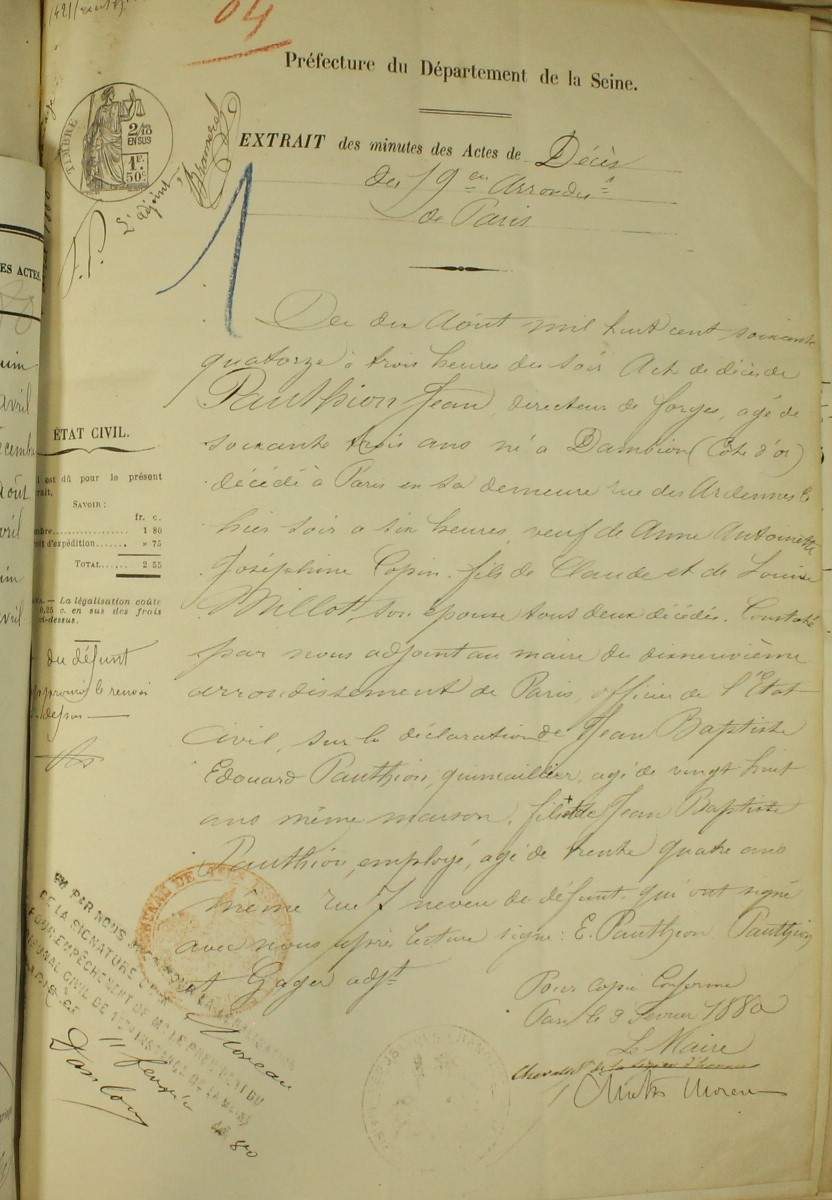 04
Préfecture du Département de la Seine.
TIMBRE
2/10
EN SUS
1F.
50c
EXTRAIT des minutes des Actes de Décès
du 19en Arrondist
de Paris
L'adjoint
1
ES ACTES
Du dix Août mil huit cent soixante
quatorze à trois heures du soir Acte de décès de
Panthion Jean, directeur de forges, agé de
soixante trois ans né à Dambion (Côte d'or)
décédé à Paris en sa demeure rue des Ardennes 6
hier soir à six heures, veuf de Anne Antoinette
Joséphine Copin. fils de Claude et de Louise
Millot, son épouse tous deux décédés. Constaté
par nous adjoint au maire du dixneuvième
arrondissement de Paris, officier de l'Etat
Civil, sur la déclaration de Jean Baptiste
Edouard Panthion, quincaillier, agé de vingt huit
ans même maison, fils + et de Jean Baptiste
Panthion, employé, agé de trente quatre ans
même rue 7 neveu du défunt. qui ont signé
avec nous après lecture signé: E. Panthion Panthion
et Gager adjt
Pour copie Conforme
Paris le 9 Février 1880
Le Maire
Chevalier de la Légion d'honneur
Moreau
ÉTAT CIVIL.
il est dû pour le présent
SAVOIR :
fr. c.
1 80
d'expédition...... » 75
TOTAL...... 2 55
La légalisation coûte
0,25 c. en sus des frais
ci-dessus.
du défunt
approuvé le renvoi
VU PAR NOUS POUR LA LÉGALISATION
DE LA SIGNATURE DE M Moreau
POUR EMPÊCHEMENT DE Mr LE PRÉSIDENT DU
TRIBUNAL CIVIL DE 1ère INSTANCE DE LA SEINE
11 février 1880